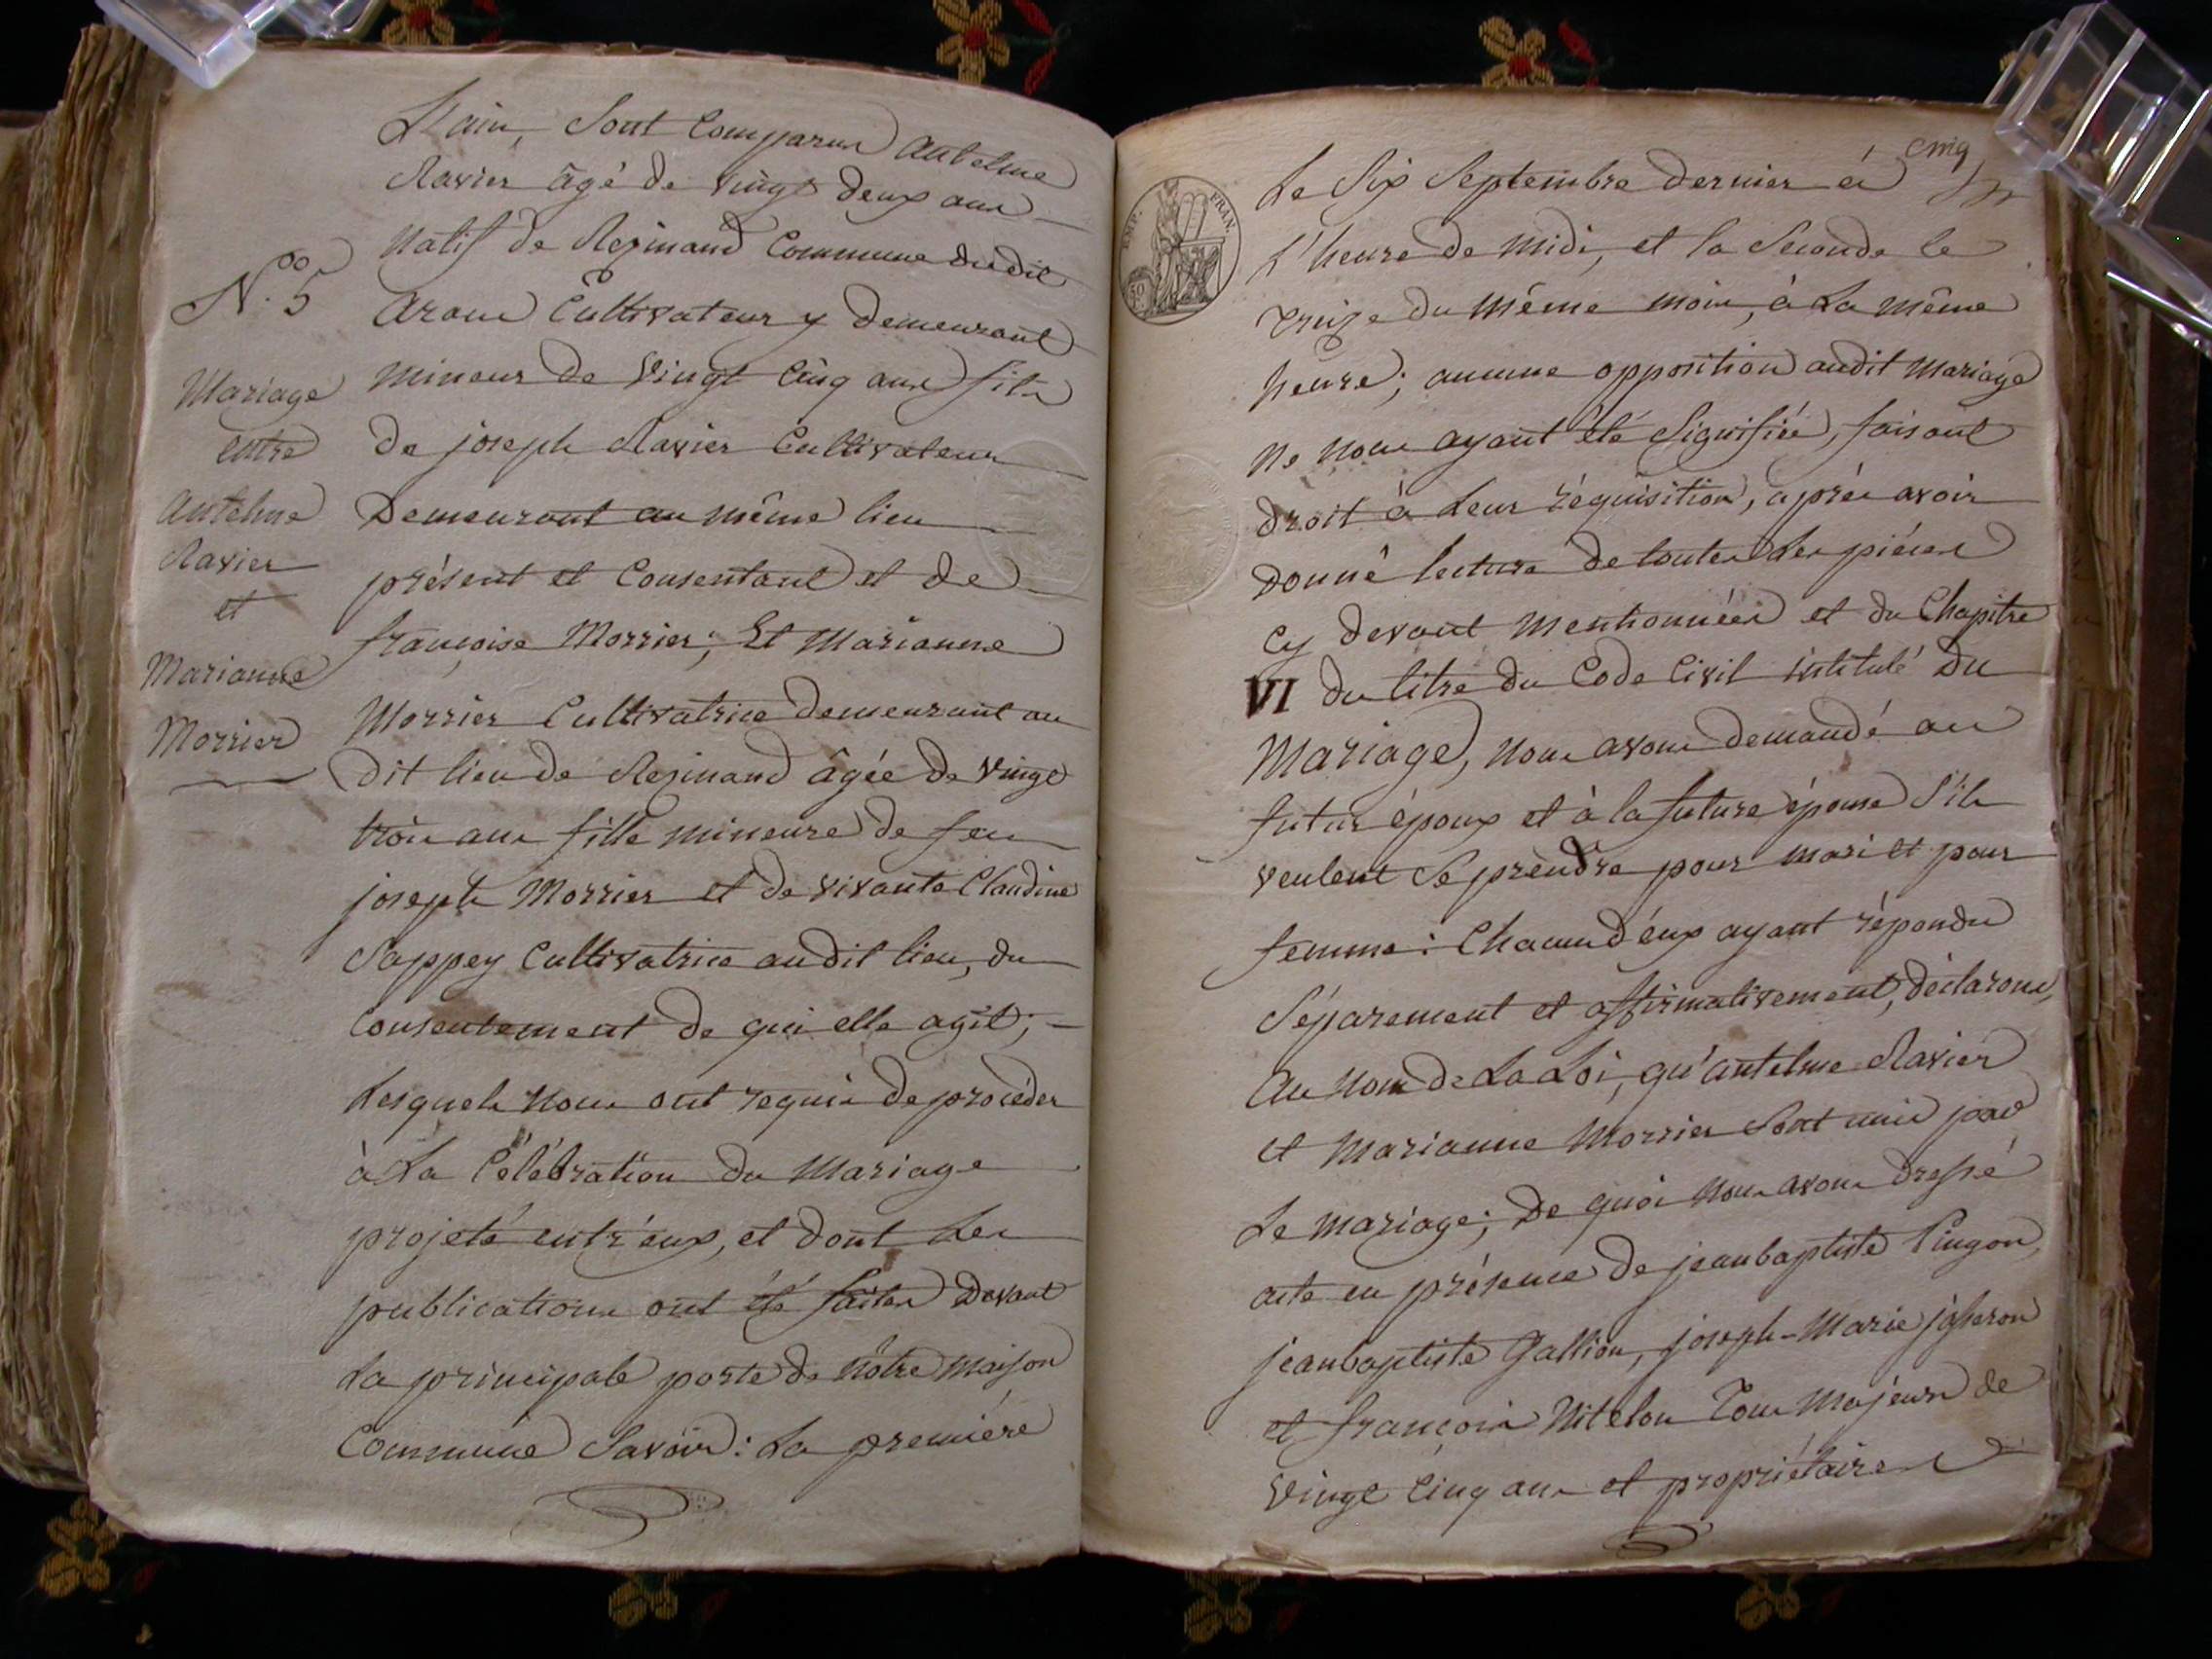 N.º 5
Mariage
entre
Antelme
Ravier
et
Marianne
Morrier
L'ain, Sont Comparus Antelme
Ravier âgé de vingt deux ans
Natif de Rejmand Commune dudit
Arans Cultivateur y demeurant
mineur de Vingt Cinq ans fils
de joseph Ravier Cultivateur
Demeurant au même lieu
présent et Consentant et de
françoise Morrier; Et Marianne
Morrier Cultivatrice demeurant au
dit lieu de Rejmand âgée de vingt
trois ans fille mineure de feu
joseph Morrier et de vivante Claudine
Sappey Cultivatrice audit lieu, du
Consentement de qui elle agit;
Lesquels nous ont requis de procéder
à La Célébration du Mariage
projeté entr'eux, et dont Les
publications ont été faites Devant
La principale porte de nôtre Maison
Commune Savoir: La première
cinq
EMP. FRAN.
50
Le Six Septembre dernier à
L'heure de midi, et la Seconde le
treize du même mois, à La même
heure; aucune opposition audit Mariage
ne nous ayant été Signifiée, faisant
droit à Leur réquisition, après avoir
donné lecture de toutes Les pièces
cy devant Mentionnées et du Chapitre
VI du titre du Code Civil intitulé Du
Mariage, nous avons demandé au
futur époux et à la future épouse S'ils
veulent Se prendre pour mari et pour
femme: Chacun d'eux ayant répondu
Séparement et affirmativement, déclarons,
Au nom de La Loi, qu'antelme Ravier
et Marianne Morrier Sont unis par
Le mariage; De quoi nous avons Dressé
acte en présence de jeanbaptiste Pingon,
jeanbaptiste Gallion, joseph-Marie josseron
et françois Nitelon Tous Majeurs de
vingt Cinq ans et propriétaires